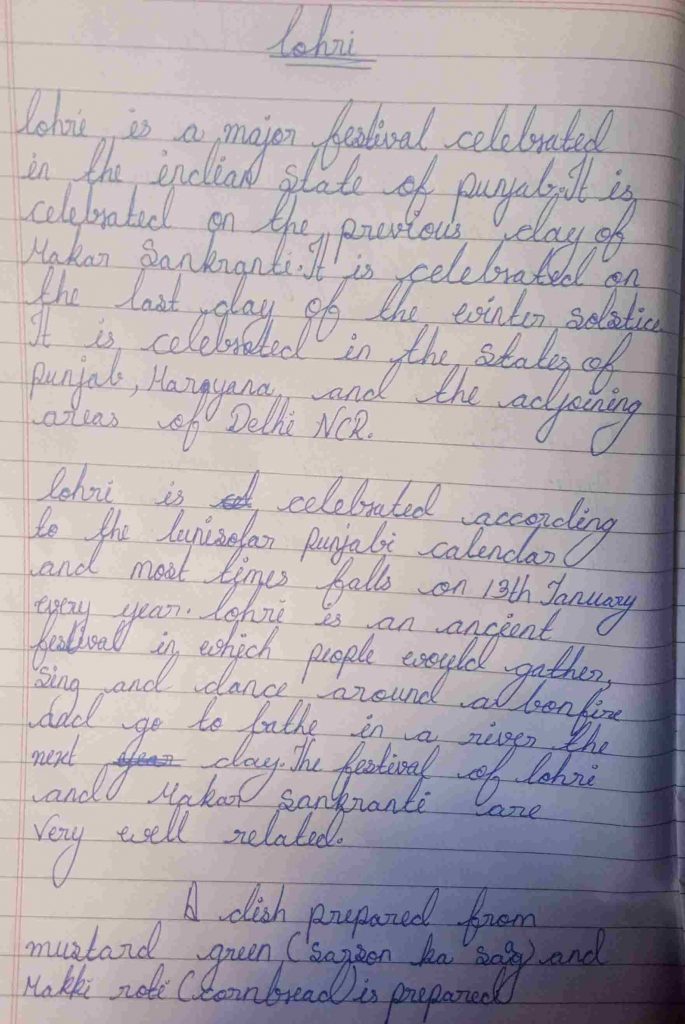 Lohri
Lohri is a major festival celebrated
in the indian State of punjab. It is
celebrated on the previous day of
Makar Sankranti. It is celebrated on
the last day of the winter solstice
It is celebrated in the states of
punjab, Harayana, and the adjoining
areas of Delhi NCR.
Lohri is celebrated according
to the lunisolar punjabi calendar
and most times falls on 13th January
every year. Lohri is an ancient
festival in which people would gather,
Sing and dance around a bonfire
add go to bathe in a river the
next year day. The festival of lohri
and Makar Sankranti are
very well related.
A dish prepared from
mustard green (sarson ka sag) and
Makki roti (cornbread) is prepared